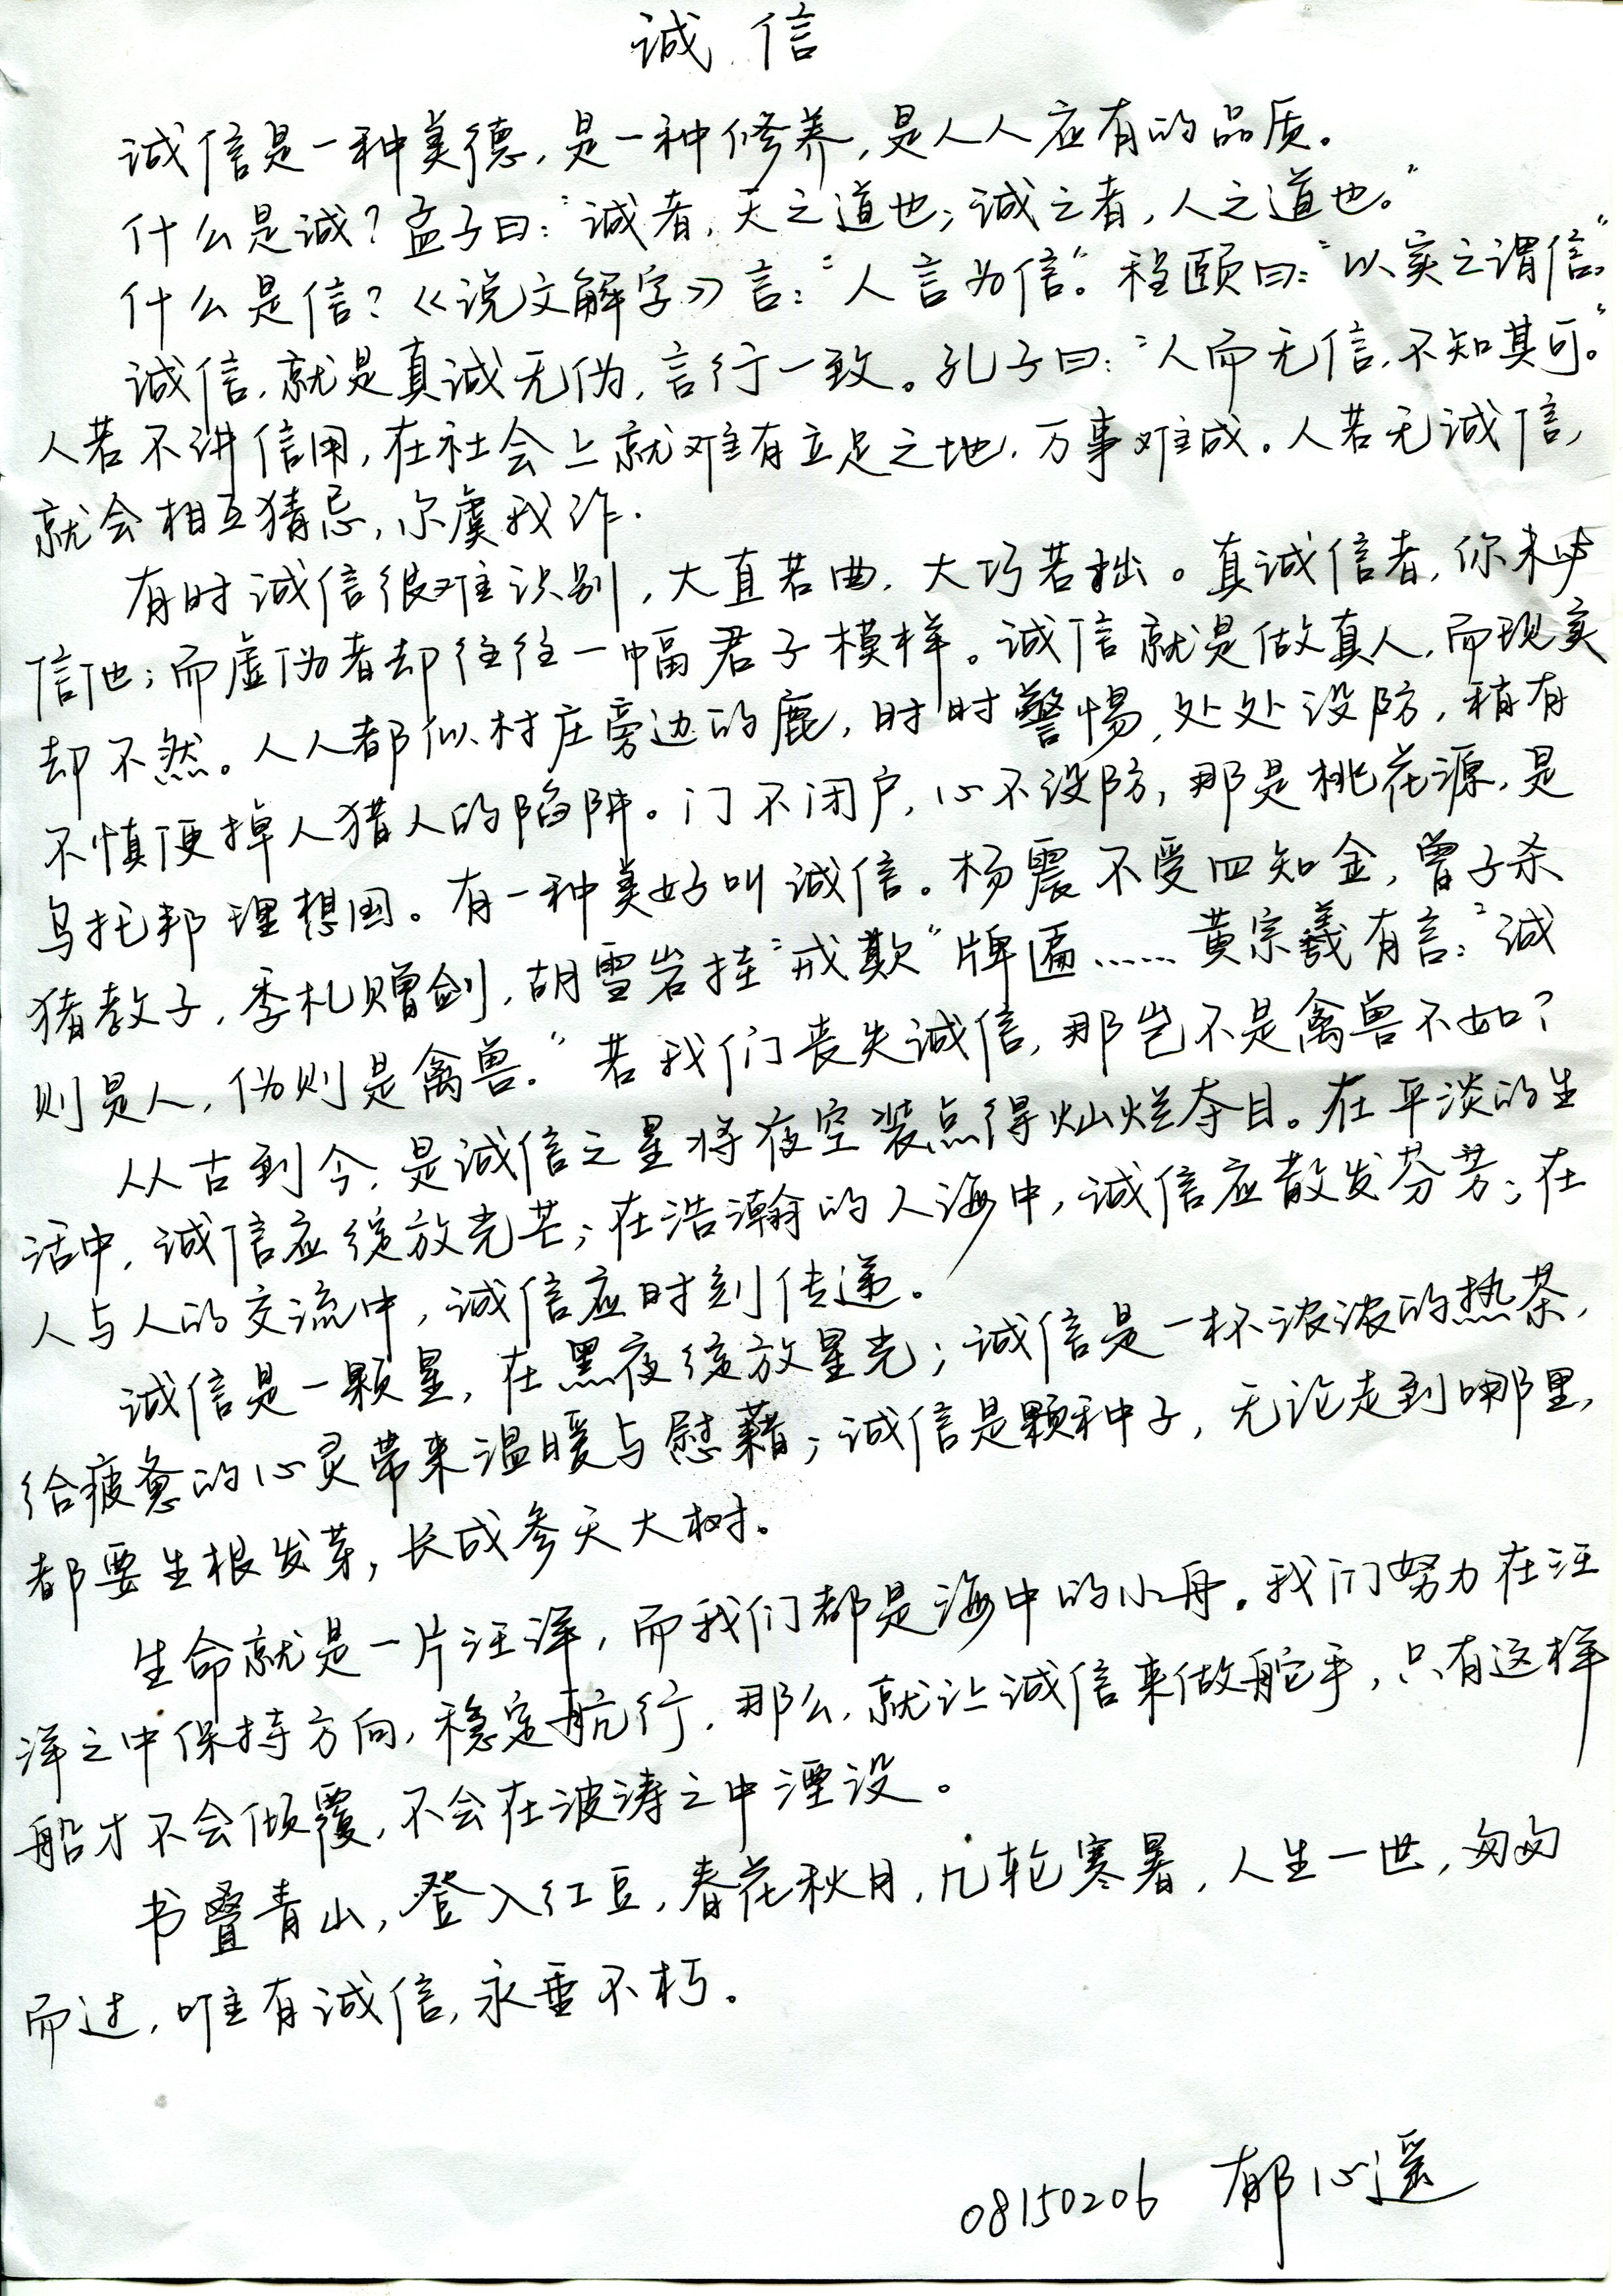 诚信
诚信是一种美德,是一种修养,是人人应有的品质。
什么是诚?孟子曰:“诚者,天之道也;诚之者,人之道也。”
什么是信?《说文解字》言:“人言为信”。程颐曰:“以实之谓信。”
诚信,就是真诚无伪,言行一致。孔子曰:“人而无信,不知其可。”
人若不讲信用,在社会上就难有立足之地,万事难成。人若无诚信,
就会相互猜忌,尔虞我诈.
有时诚信很难识别,大直若曲,大巧若拙。真诚信者,你未必
信他;而虚伪者却往往一幅君子模样。诚信就是做真人,而现实
却不然。人人都似村庄旁边的鹿,时时警惕,处处设防,稍有
不慎便掉入猎人的陷阱。门不闭户,心不设防,那是桃花源,是
乌托邦理想国。有一种美好叫诚信。杨震不受四知金,曾子杀
猪教子,季札赠剑,胡雪岩挂“戒欺”牌匾……黄宗羲有言:“诚
则是人,伪则是禽兽.”若我们丧失诚信,那岂不是禽兽不如?
从古到今,是诚信之星将夜空装点得灿烂夺目。在平淡的生
活中,诚信应绽放光芒;在浩瀚的人海中,诚信应散发芬芳;在
人与人的交流中,诚信应时刻传递。
诚信是一颗星,在黑夜绽放星光;诚信是一杯浓浓的热茶,
给疲惫的心灵带来温暖与慰藉;诚信是颗种子,无论走到哪里,
都要生根发芽,长成参天大树。
生命就是一片汪洋,而我们都是海中的小舟。我们努力在汪
洋之中保持方向,稳定航行,那么,就让诚信来做舵手,只有这样
船才不会倾覆,不会在波涛之中湮没。
书叠青山,登入红豆,春花秋月,几轮寒暑,人生一世,匆匆
而过,唯有诚信,永垂不朽。
08150206 郁心遥